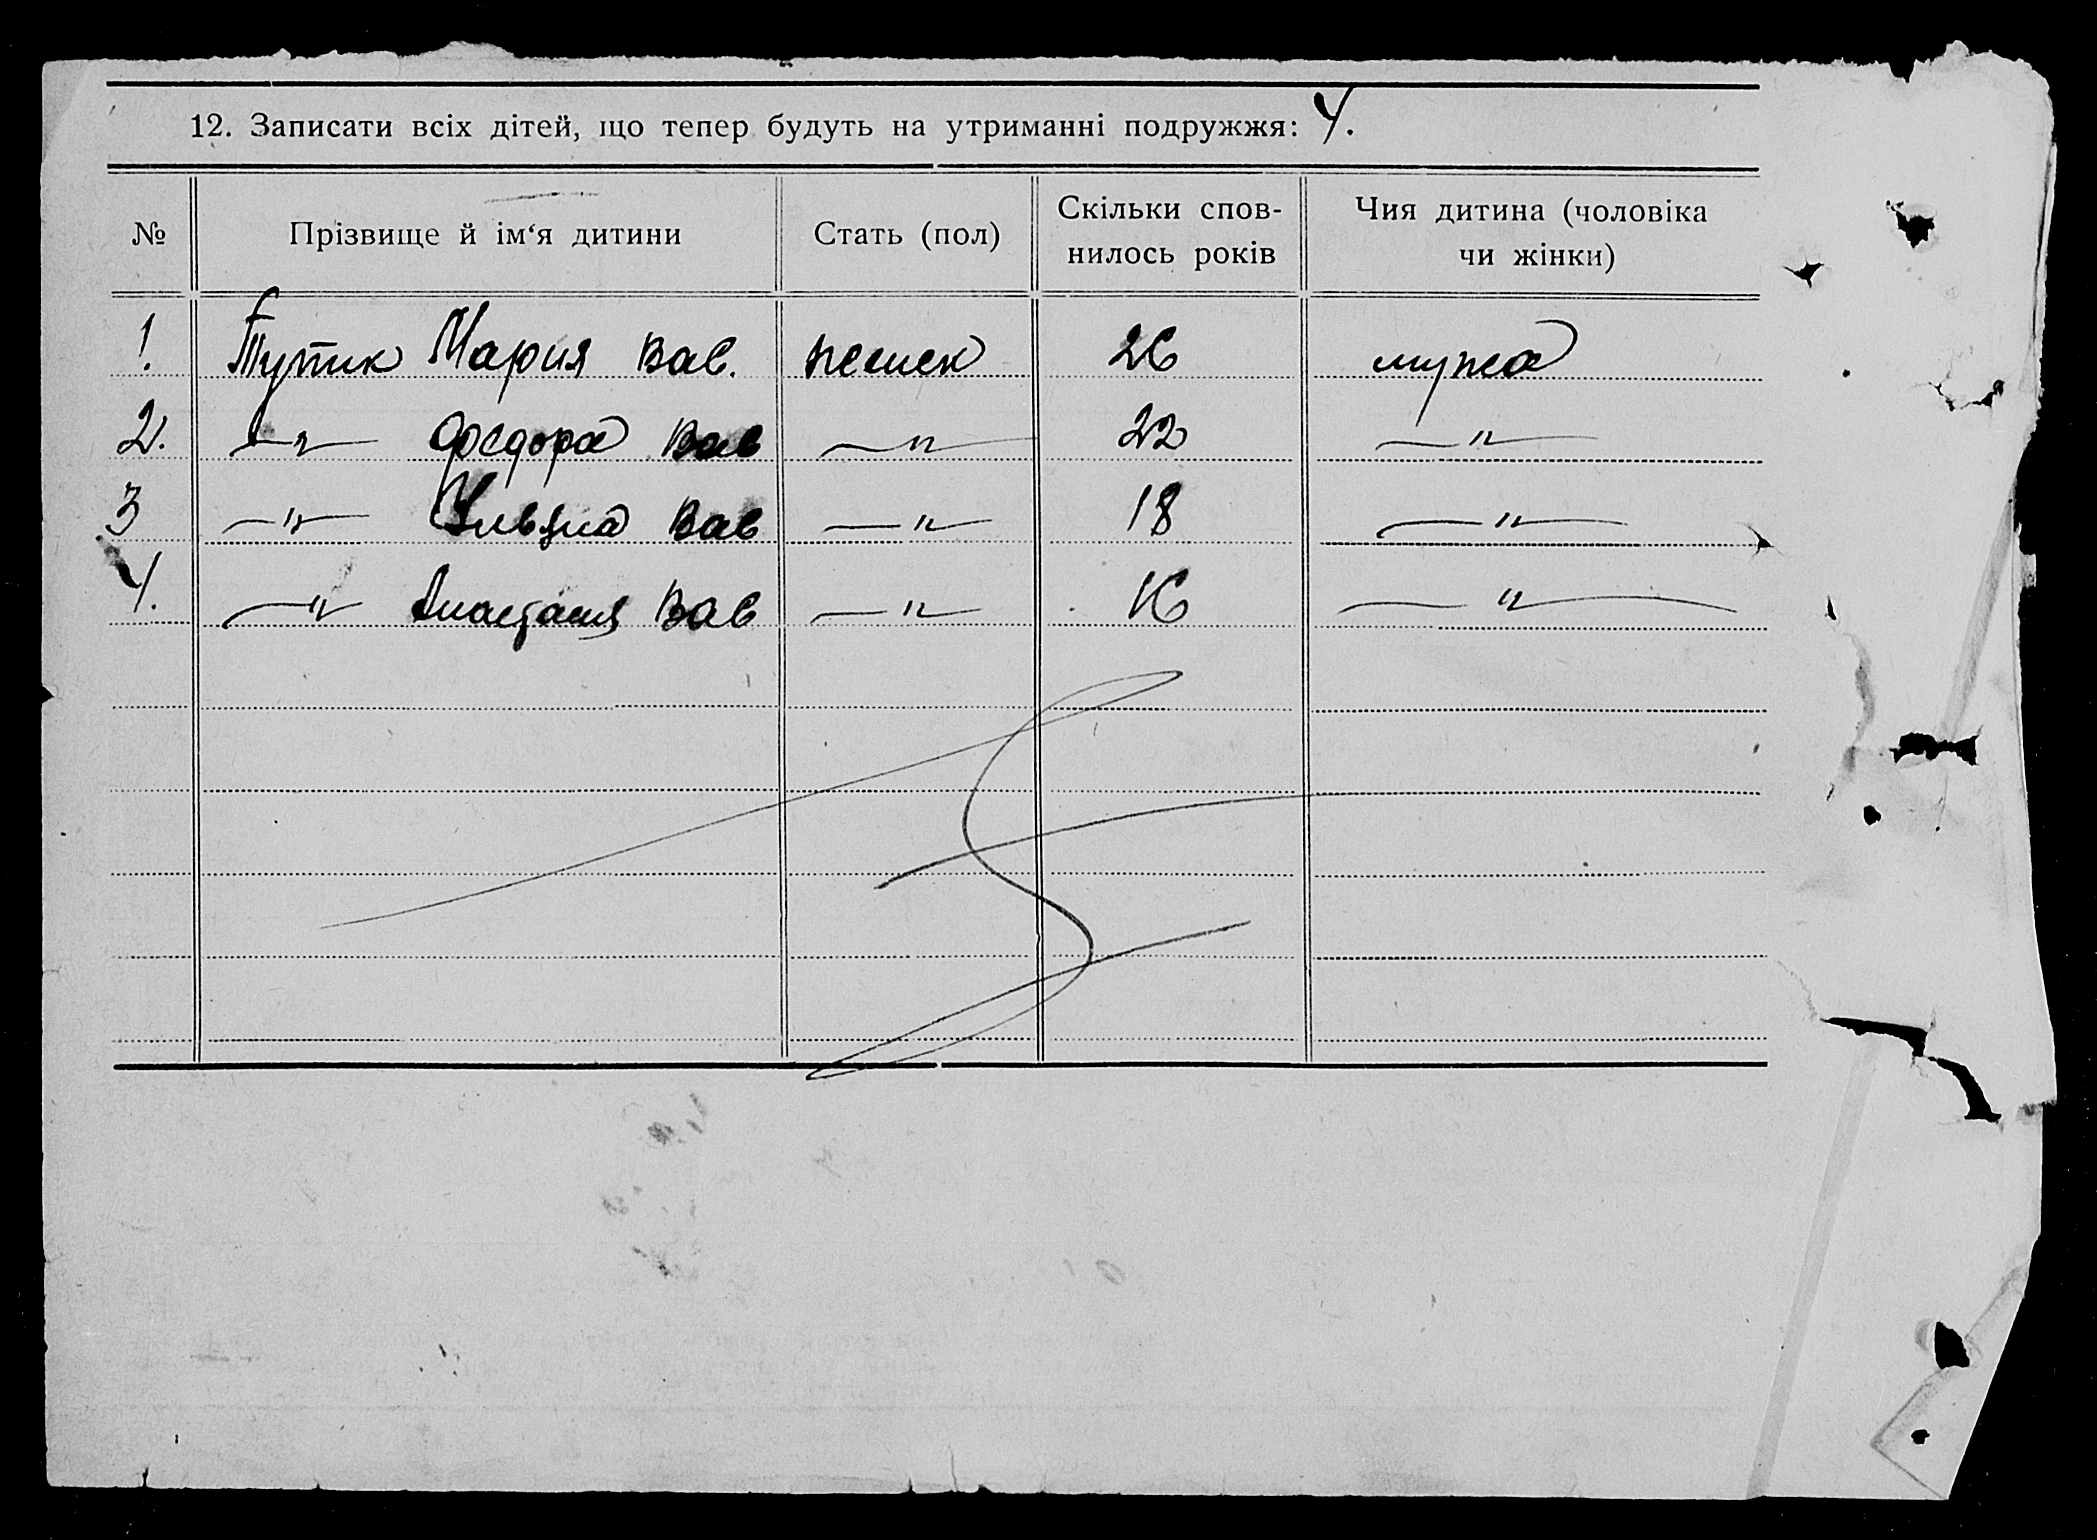 12. Записати всіх дітей, що тепер будуть на утриманні подружжя: 4.
№ Прізвище й ім‘я дитини Стать (пол) Скільки спов- Чия дитина (чоловіка
нилось років чи жінки)
1. Тупик Мария Вав. женск 26 мужа
2. —"— Федора Вав —"— 22 —"—
3 —"— Ульяна Вав —"— 18 —"—
4. —"— Анастасия Вав —"— 16 —"—